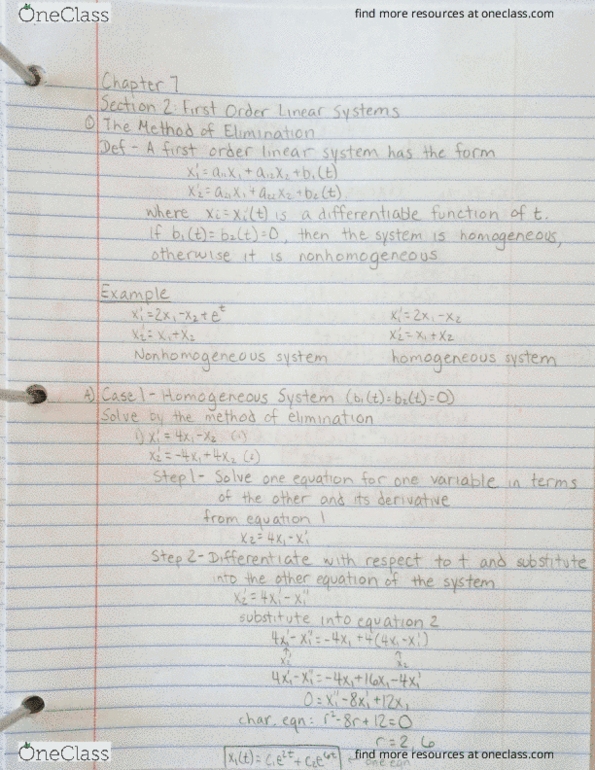 OneClass
find more resources at oneclass.com
Chapter 7
Section 2: First Order Linear Systems
① The Method of Elimination
Def - A first order linear system has the form
x₁' = a₁₁x₁ + a₁₂x₂ + b₁(t)
x₂' = a₂₁x₁ + a₂₂x₂ + b₂(t)
where xᵢ = xᵢ(t) is a differentiable function of t.
If b₁(t) = b₂(t) = 0, then the system is homogeneous,
otherwise it is nonhomogeneous
Example
x₁' = 2x₁ - x₂ + eᵗ x₁' = 2x₁ - x₂
x₂' = x₁ + x₂ x₂' = x₁ + x₂
Nonhomogeneous system homogeneous system
A) Case 1 - Homogeneous System (b₁(t) = b₂(t) = 0)
Solve by the method of elimination
1) x₁' = 4x₁ - x₂ (1)
x₂' = -4x₁ + 4x₂ (2)
Step 1 - Solve one equation for one variable in terms
of the other and its derivative
from equation 1
x₂ = 4x₁ - x₁'
Step 2 - Differentiate with respect to t and substitute
into the other equation of the system
x₂' = 4x₁' - x₁''
substitute into equation 2
4x₁' - x₁'' = -4x₁ + 4(4x₁ - x₁')
↑ ↑
x₂' x₂
4x₁' - x₁'' = -4x₁ + 16x₁ - 4x₁'
0 = x₁'' - 8x₁' + 12x₁
char. eqn: r² - 8r + 12 = 0
r = 2, 6
x₁(t) = c₁e²ᵗ + c₂e⁶ᵗ one eqn
OneClass
find more resources at oneclass.com